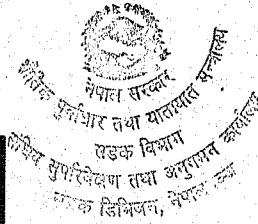 नेपाल सरकार
भौतिक पूर्वाधार तथा यातायात मन्त्रालय
सडक विभाग
सुपरिवेक्षण तथा अनुगमन कार्यालय
सडक डिभिजन,